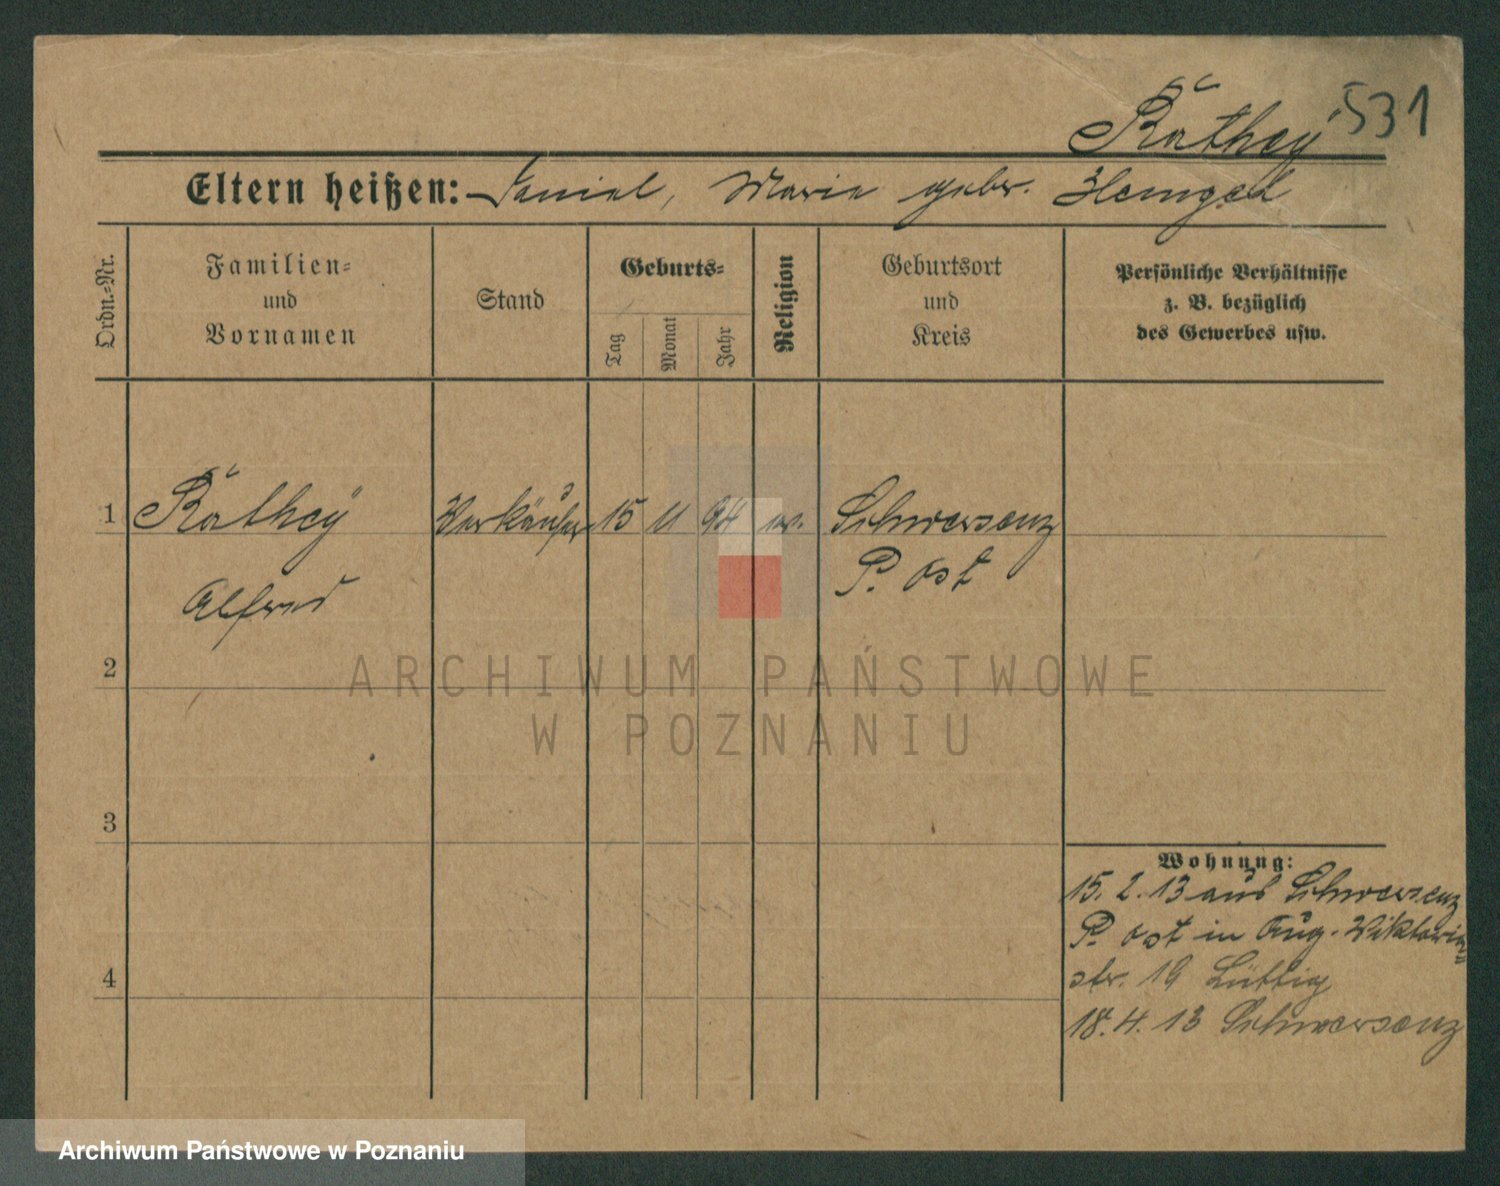 Räthey 531
Eltern heißen: Daniel, Marie gebr.
Ordn.-Nr.
Familien-
und
Vornamen
Stand
Geburts-
Tag
Monat
Jahr
Religion
Geburtsort
und
Kreis
Persönliche Verhältnisse
z. B. bezüglich
des Gewerbes usw.
1 Räthey Verkäufer 15 11 94 ev. Schwersenz
P. Ost
Alfred
2
ARCHIWUM PAŃSTWOWE
W POZNANIU
3
Wohnung:
15. 2. 13 aus Schwersenz
P. Ost in Aug. Viktoria-
str. 19 Lüttig
4
18. 4. 13 Schwersenz
Archiwum Państwowe w Poznaniu